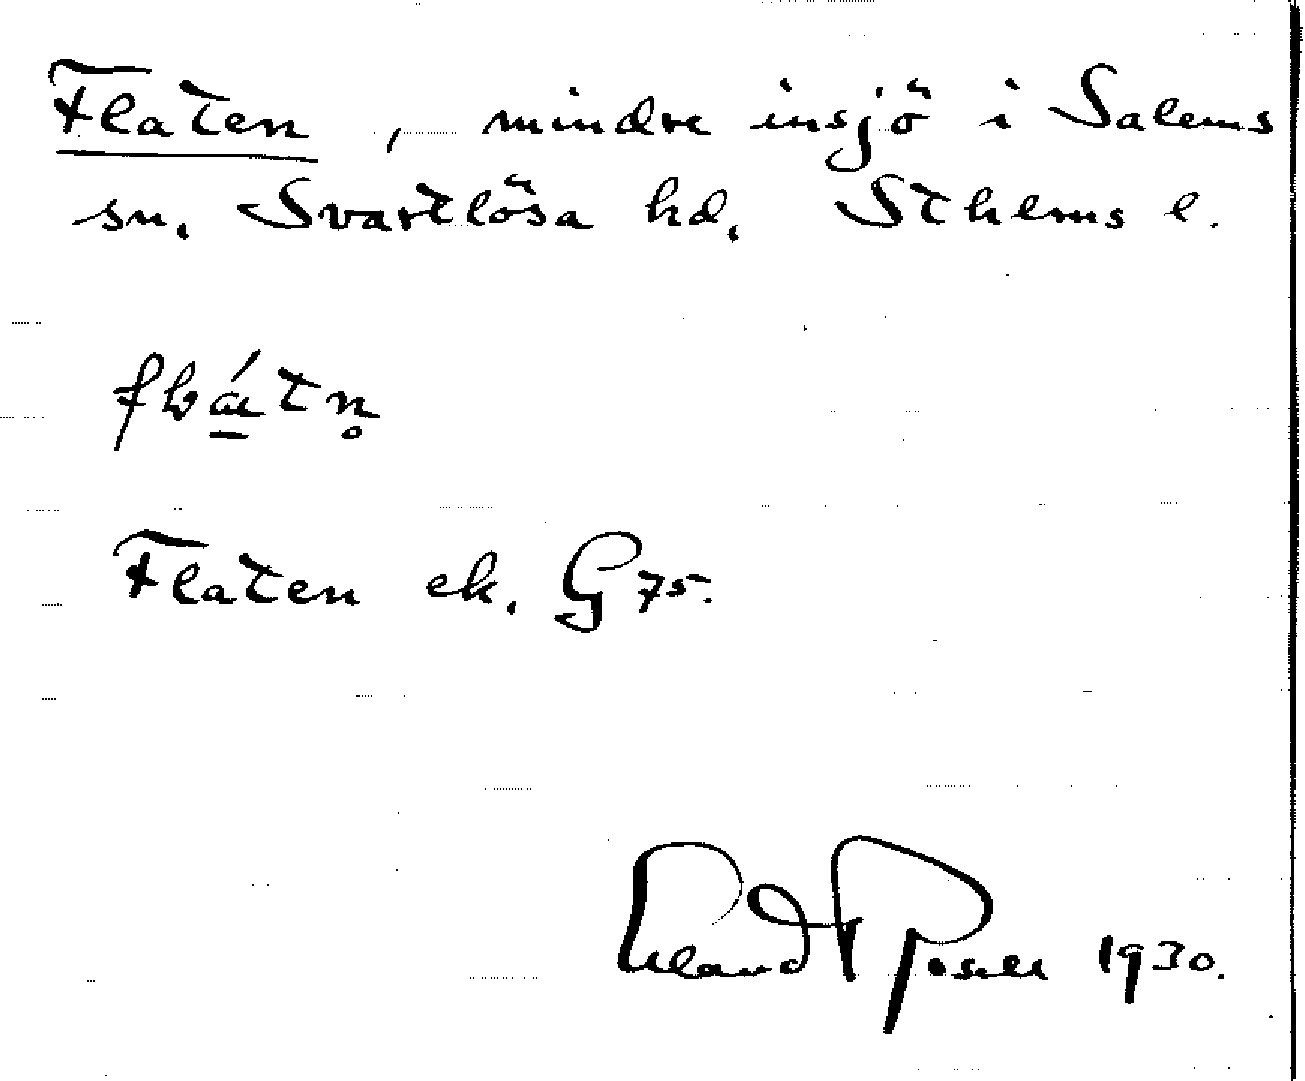 Flaten, mindre insjö i Salems
sn. Svartlösa hd. Sthlms l.
Flaten ek. G 75.
Erland Rosell 1930.